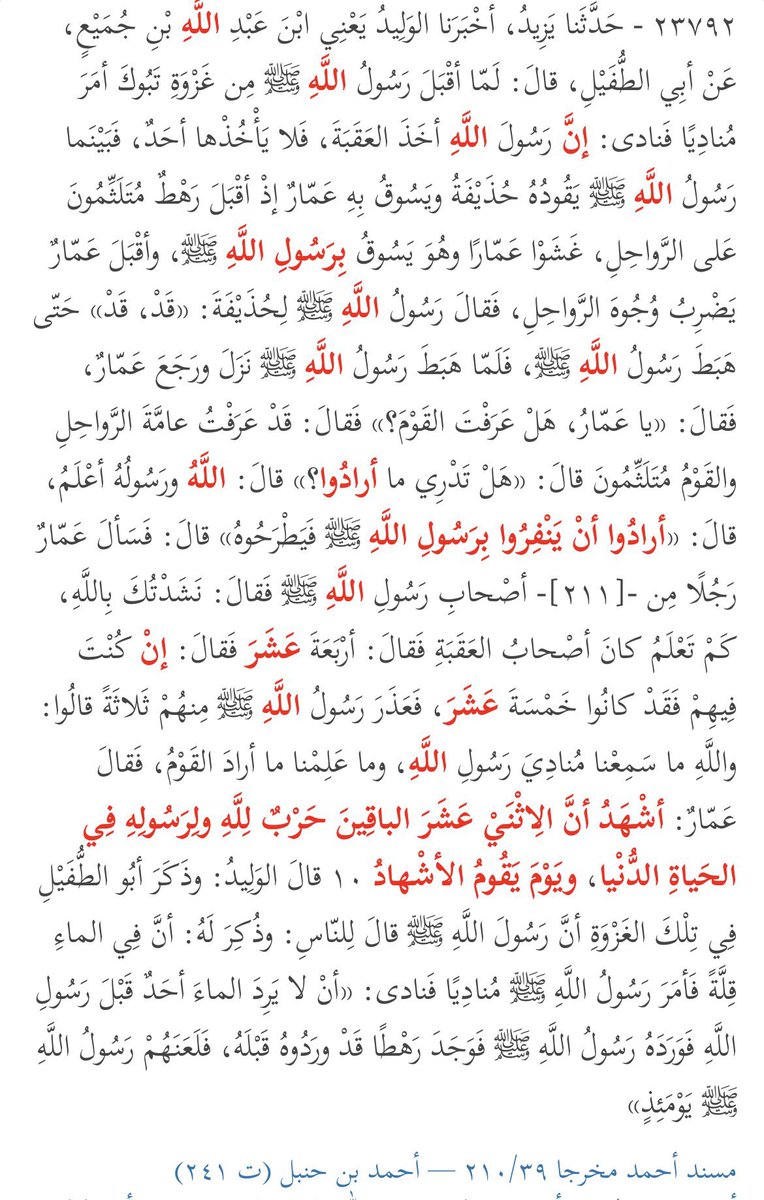 ٢٣٧٩٢ - حَدَّثَنا يَزِيدُ، أخْبَرَنا الوَلِيدُ يَعْنِي ابْنَ عَبْدِ اللَّهِ بْنِ جُمَيْعٍ،
عَنْ أبِي الطُّفَيْلِ، قالَ: لَمّا أقْبَلَ رَسُولُ اللَّهِ ﷺ مِن غَزْوَةِ تَبُوكَ أمَرَ
مُنادِيًا فَنادى: إنَّ رَسُولَ اللَّهِ أخَذَ العَقَبَةَ، فَلا يَأْخُذْها أحَدٌ، فَبَيْنَما
رَسُولُ اللَّهِ ﷺ يَقُودُهُ حُذَيْفَةُ ويَسُوقُ بِهِ عَمّارٌ إذْ أقْبَلَ رَهْطٌ مُتَلَثِّمُونَ
عَلى الرَّواحِلِ، غَشَوْا عَمّارًا وهُوَ يَسُوقُ بِرَسُولِ اللَّهِ ﷺ، وأقْبَلَ عَمّارٌ
يَضْرِبُ وُجُوهَ الرَّواحِلِ، فَقالَ رَسُولُ اللَّهِ ﷺ لِحُذَيْفَةَ: «قَدْ، قَدْ» حَتّى
هَبَطَ رَسُولُ اللَّهِ ﷺ، فَلَمّا هَبَطَ رَسُولُ اللَّهِ ﷺ نَزَلَ ورَجَعَ عَمّارٌ،
فَقالَ: «يا عَمّارُ، هَلْ عَرَفْتَ القَوْمَ؟» فَقالَ: قَدْ عَرَفْتُ عامَّةَ الرَّواحِلِ
والقَوْمُ مُتَلَثِّمُونَ قالَ: «هَلْ تَدْرِي ما أرادُوا؟» قالَ: اللَّهُ ورَسُولُهُ أعْلَمُ،
قالَ: «أرادُوا أنْ يَنْفِرُوا بِرَسُولِ اللَّهِ ﷺ فَيَطْرَحُوهُ» قالَ: فَسَألَ عَمّارٌ
رَجُلًا مِن -[٢١١]- أصْحابِ رَسُولِ اللَّهِ ﷺ فَقالَ: نَشَدْتُكَ بِاللَّهِ،
كَمْ تَعْلَمُ كانَ أصْحابُ العَقَبَةِ فَقالَ: أرْبَعَةَ عَشَرَ فَقالَ: إنْ كُنْتَ
فِيهِمْ فَقَدْ كانُوا خَمْسَةَ عَشَرَ، فَعَذَرَ رَسُولُ اللَّهِ ﷺ مِنهُمْ ثَلاثَةً قالُوا:
واللَّهِ ما سَمِعْنا مُنادِيَ رَسُولِ اللَّهِ، وما عَلِمْنا ما أرادَ القَوْمُ، فَقالَ
عَمّارٌ: أشْهَدُ أنَّ الِاثْنَيْ عَشَرَ الباقِينَ حَرْبٌ لِلَّهِ ولِرَسُولِهِ فِي
الحَياةِ الدُّنْيا، ويَوْمَ يَقُومُ الأشْهادُ ١٠ قالَ الوَلِيدُ: وذَكَرَ أبُو الطُّفَيْلِ
فِي تِلْكَ الغَزْوَةِ أنَّ رَسُولَ اللَّهِ ﷺ قالَ لِلنّاسِ: وذُكِرَ لَهُ: أنَّ فِي الماءِ
قِلَّةً فَأمَرَ رَسُولُ اللَّهِ ﷺ مُنادِيًا فَنادى: «أنْ لا يَرِدَ الماءَ أحَدٌ قَبْلَ رَسُولِ
اللَّهِ فَوَرَدَهُ رَسُولُ اللَّهِ ﷺ فَوَجَدَ رَهْطًا قَدْ ورَدُوهُ قَبْلَهُ، فَلَعَنَهُمْ رَسُولُ اللَّهِ
ﷺ يَوْمَئِذٍ»
مسند أحمد مخرجا ٢١٠/٣٩ — أحمد بن حنبل (ت ٢٤١)